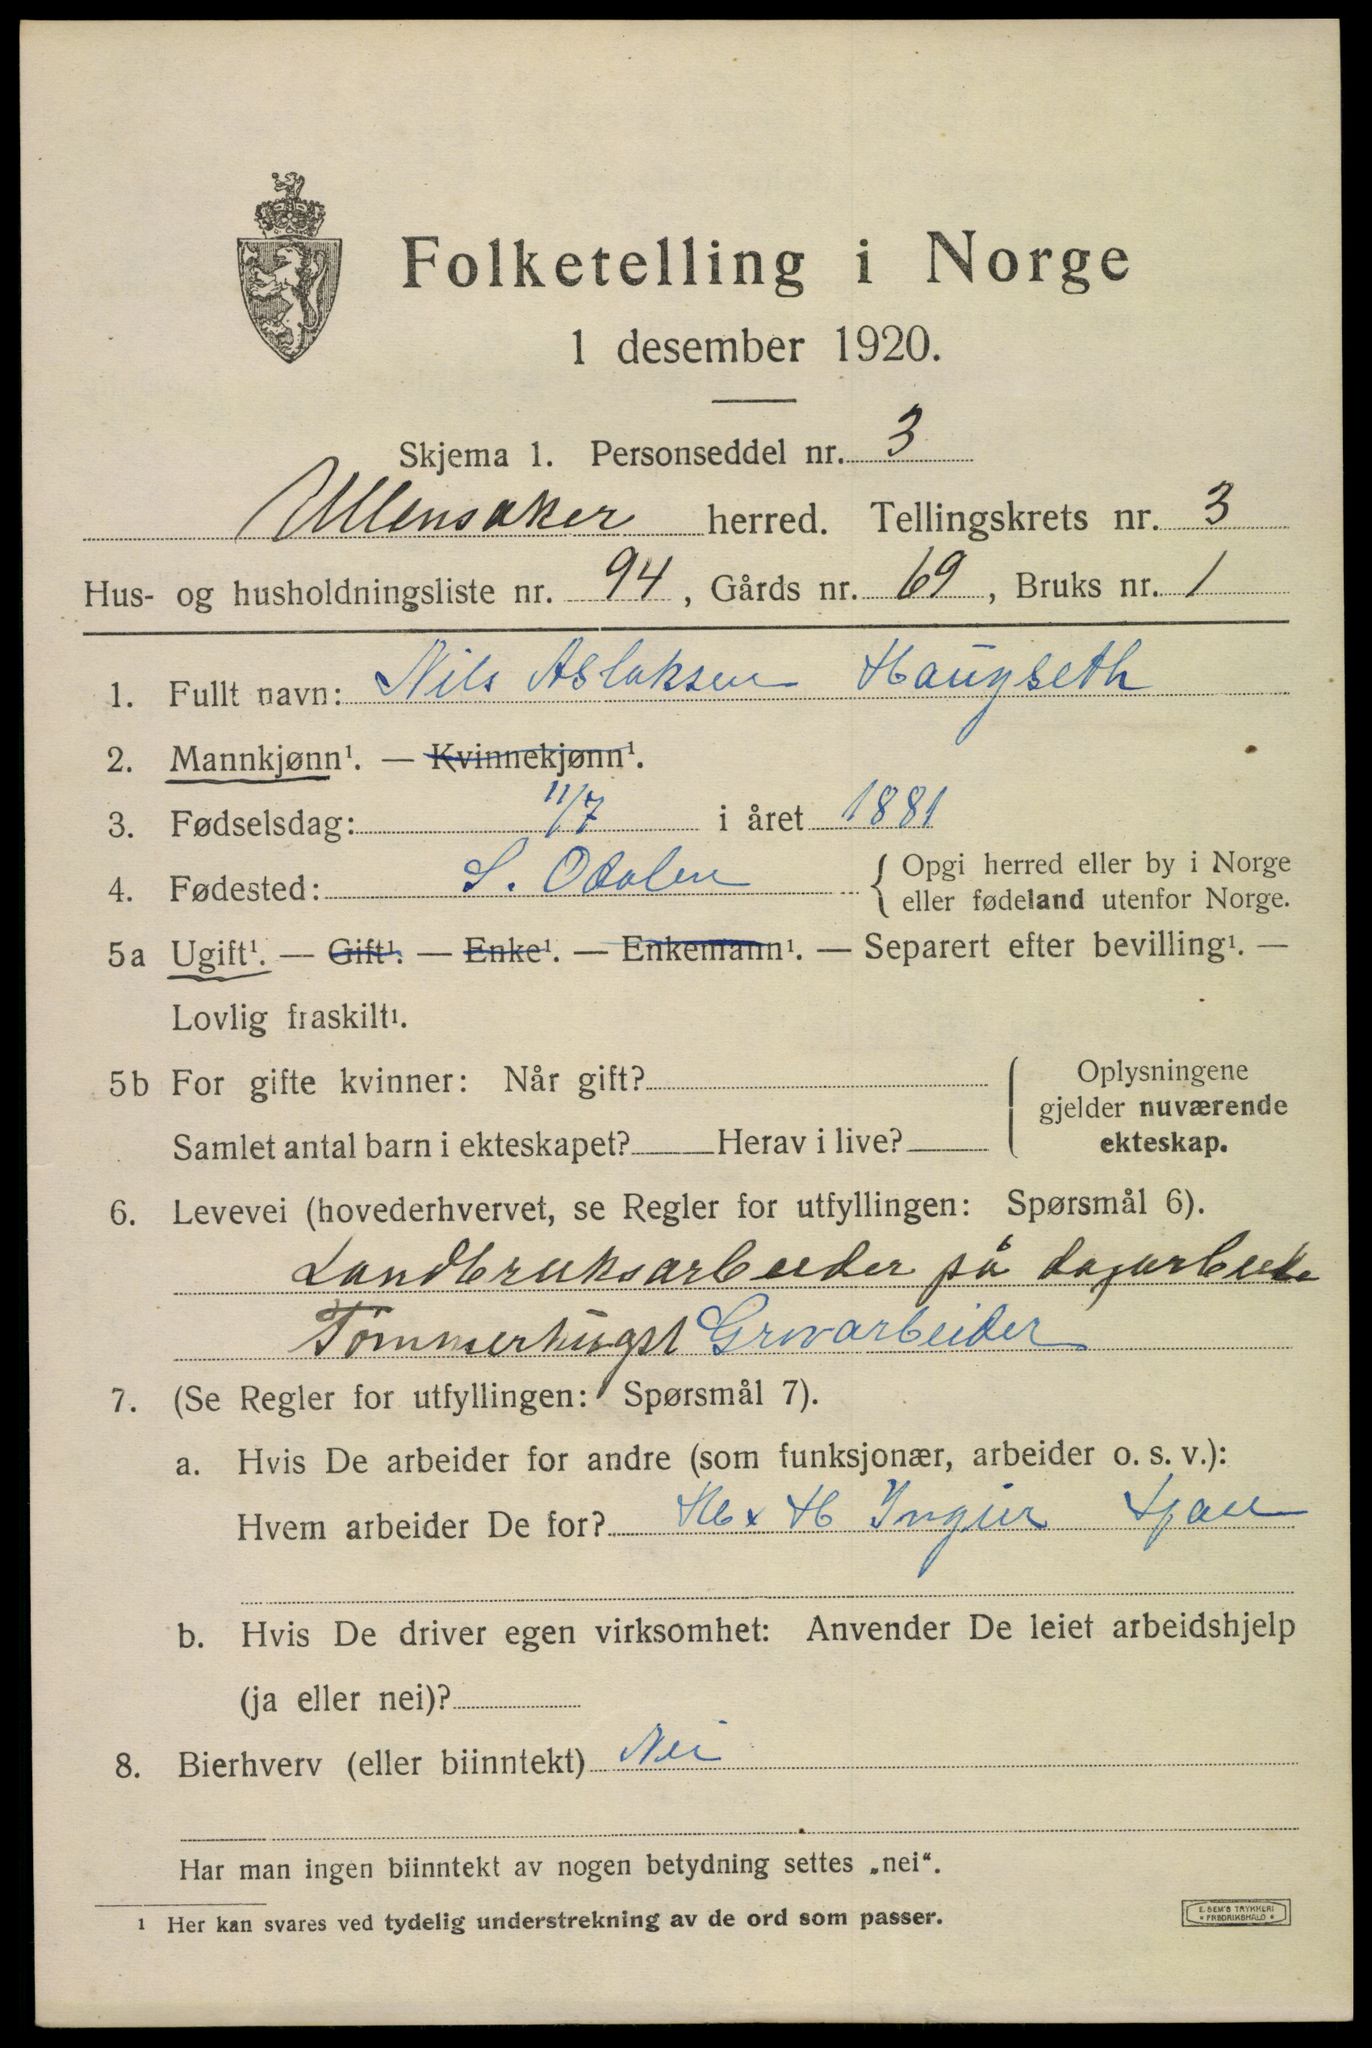 Folketelling i Norge
1 desember 1920.
Skjema 1. Personseddel nr. 3
Ullensaker herred. Tellingskrets nr. 3
Hus- og husholdningsliste nr. 94, Gårds nr. 69, Bruks nr. 1
1. Fullt navn: Nils Aslaksen Haugseth
2. Mannkjønn¹. — Kvinnekjønn¹.
3. Fødselsdag: 11/7 i året 1881
4. Fødested: S. Odalen { Opgi herred eller by i Norge
eller fødeland utenfor Norge.
5a Ugift¹. — Gift¹. — Enke¹. — Enkemann¹. — Separert efter bevilling¹. —
Lovlig fraskilt¹.
5b For gifte kvinner: Når gift?
Samlet antal barn i ekteskapet? Herav i live?
Oplysningene
gjelder nuværende
ekteskap.
6. Levevei (hovederhvervet, se Regler for utfyllingen: Spørsmål 6).
Landbruksarbeider på dagarbeide
Tømmerhugst Grovarbeider
7. (Se Regler for utfyllingen: Spørsmål 7).
a. Hvis De arbeider for andre (som funksjonær, arbeider o. s. v.):
Hvem arbeider De for? H Ingier
b. Hvis De driver egen virksomhet: Anvender De leiet arbeidshjelp
(ja eller nei)?
8. Bierhverv (eller biinntekt) Nei
Har man ingen biinntekt av nogen betydning settes „nei“.
¹ Her kan svares ved tydelig understrekning av de ord som passer.
E. SEM'S TRYKKERI
* FREDRIKSHALD *